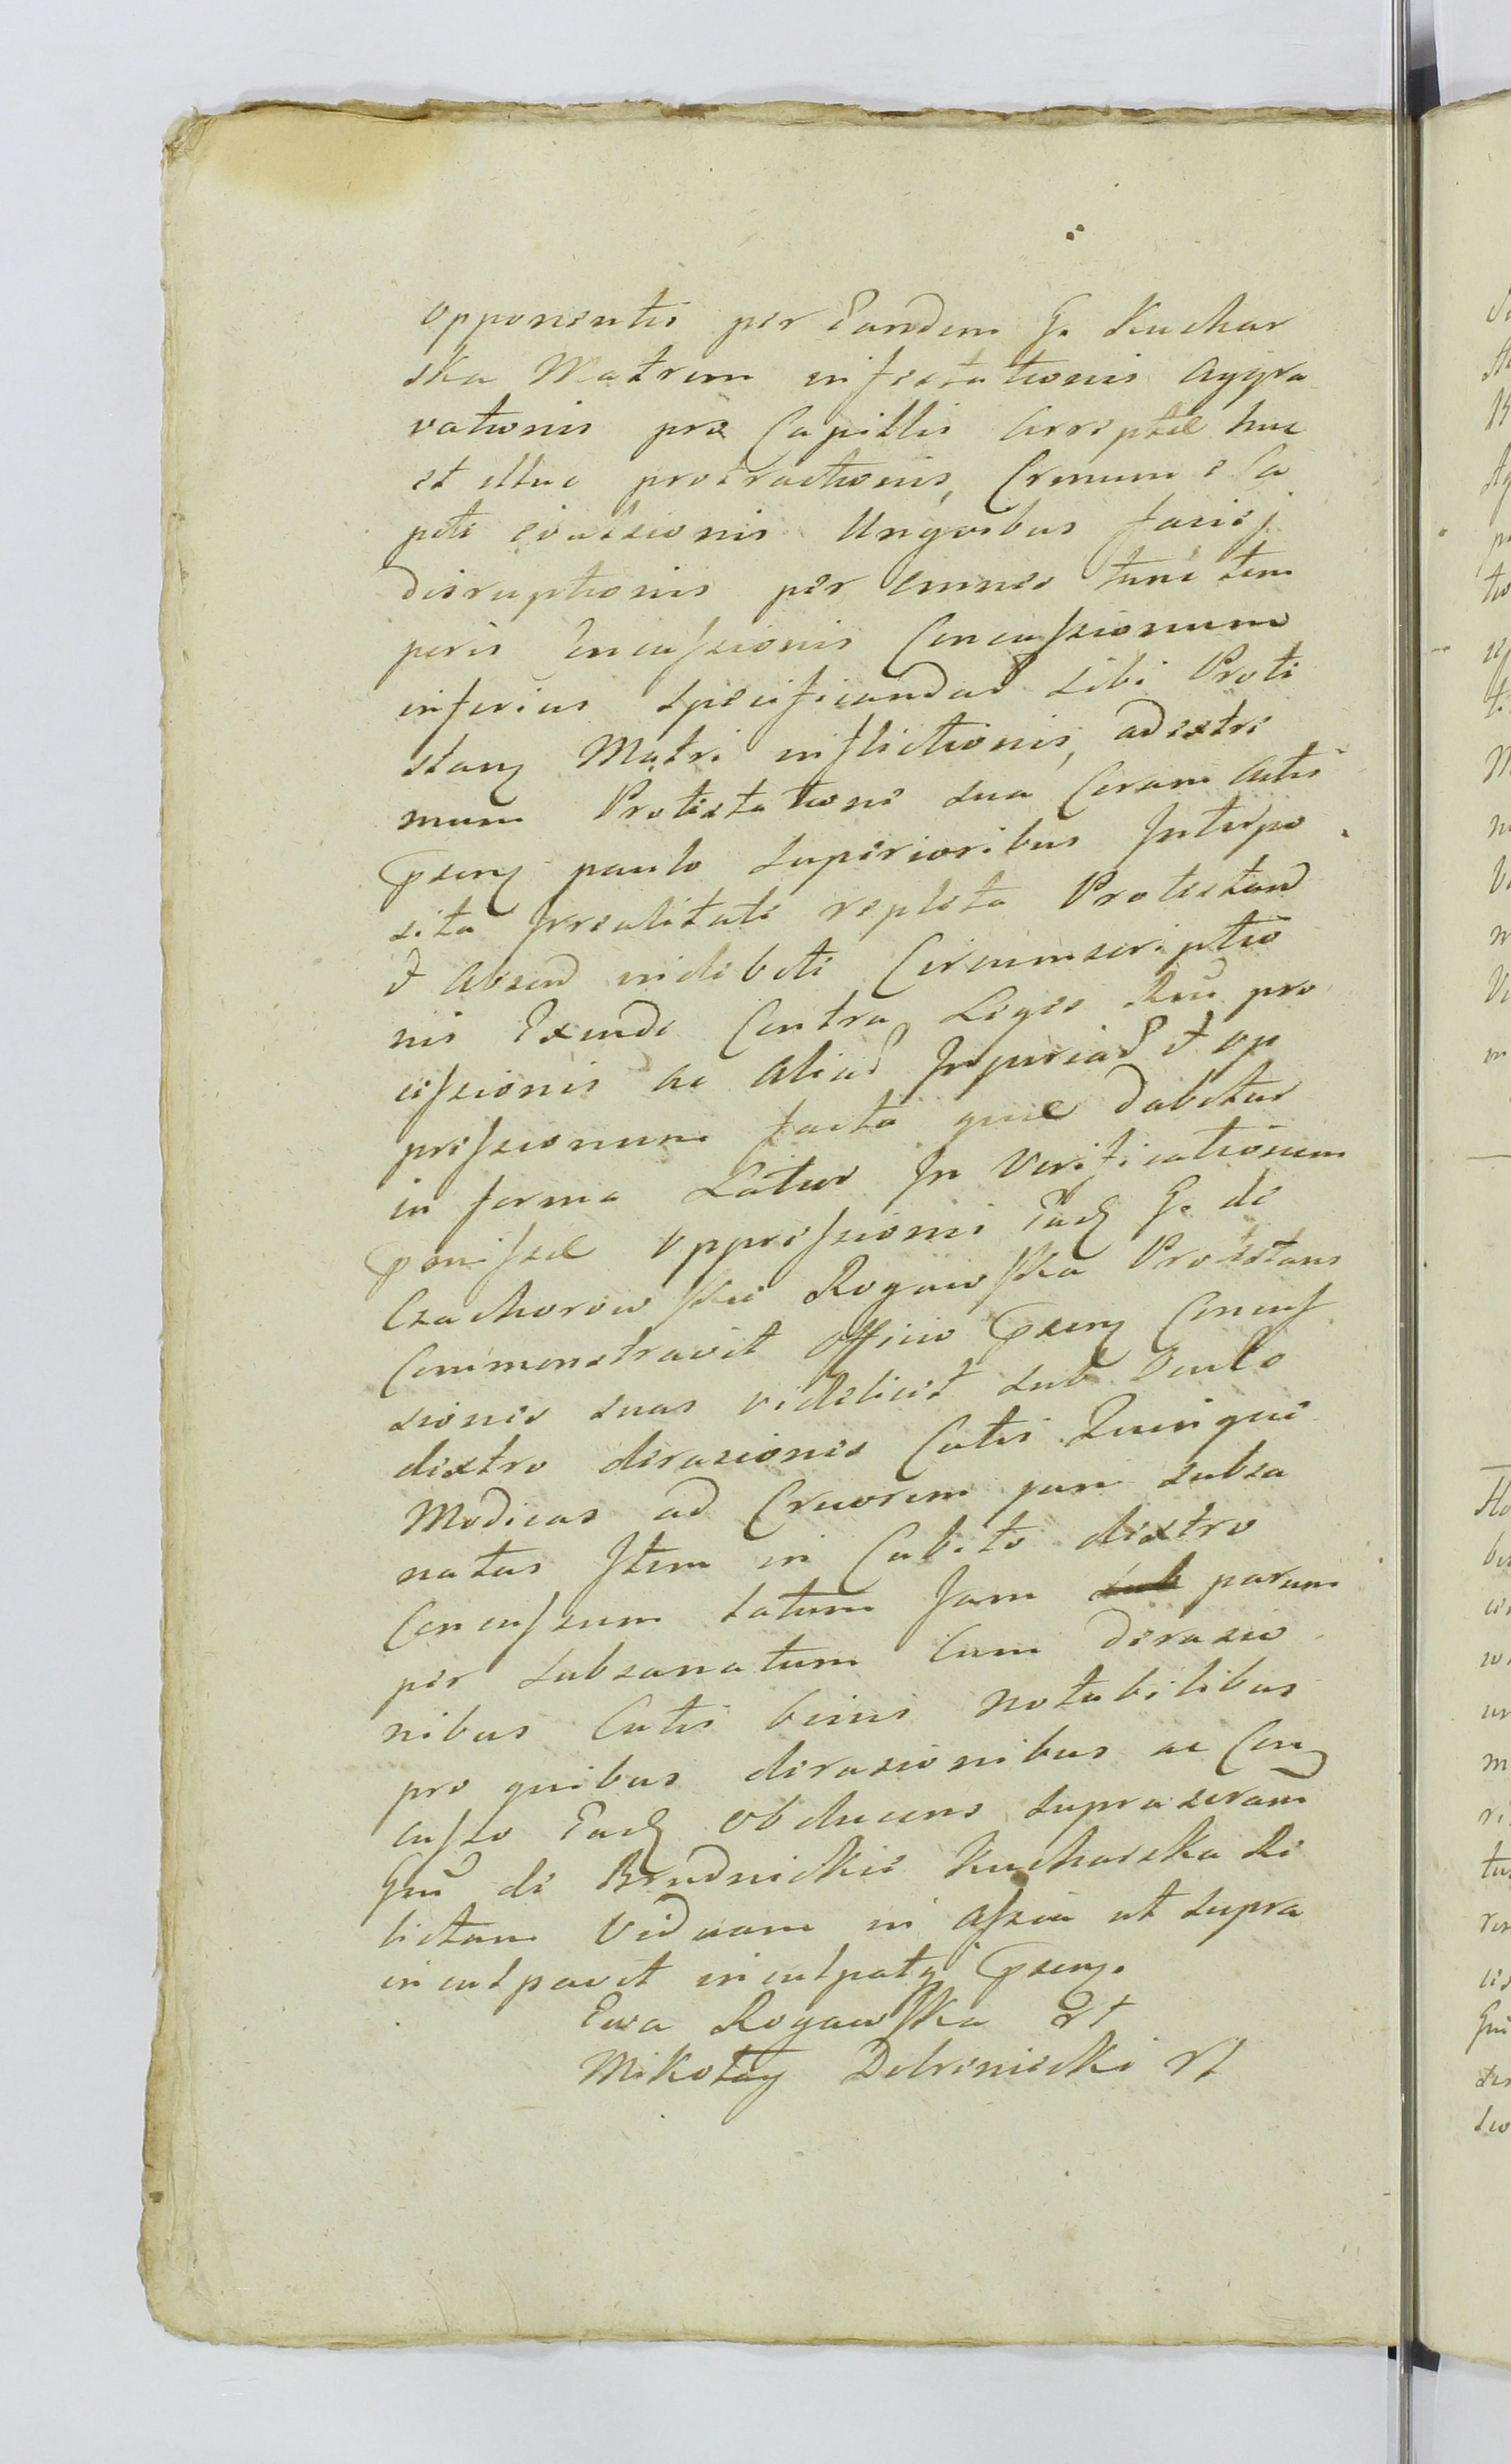 opponentis per Eandem G. Kuchar
ska Matrem infestationis aggra
vationis pro Capillis arreptae huc
et illuc protractionis, Crinum e Ca
pite evulsionis Ungvibus faciej
disruptionis per omnes tunc tem
poris Concussionis Concussionum
inferius specificandar sibi Prote
stanȝ Matri inflictionis, ad extre
mum Protestatione sua Coram actis
pseng paulo superioribus Interpo
sita irrealitate repleta Protestand
et absend indebite Circumscriptio
nis Exinde Contra Leges Rem pro
cessionis ac aliar Injuriar et op
pressionum facta quae dabitur
in forma Latior In Verificationem
pmissae oppressionis Eadȝ G. de
Czachorowskie Rogawska Protestans
Commonstravit officio pseng Concus
siones suas videlicet sub Oculo
dextro derasiones Cutis Quinque
Modicas ad Cruorem jam subsa
natas Item in Cubito dextro
Concussum Latum Jam sub parum
per subsanatum cum derasio
nibus Cutis binis notabilibus
pro quibus derasionibus ac Con
cusso Eadȝ obducens supra seram
Gnm de Brudnickie Kucharska Re
lictam Viduam in assciu ut supra
inculpavit inculpatȝ pseng.
Ewa Rogawska
Mikołay Dobreniecki